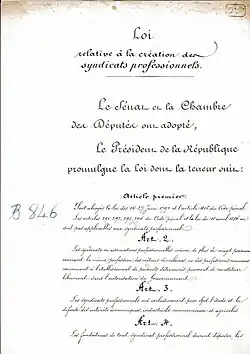 Loi
relative à la création des
syndicats professionnels.
Le Sénat et la Chambre
des Députés ont adopté,
Le Président de la République
promulgue la loi dont la teneur suit :
Article premier.
Sont abrogés la loi des 14-27 juin 1791 et l'article 416 du Code pénal.
Les articles 291, 292, 293, 294 du Code pénal et la loi du 10 avril 1834 ne
sont pas applicables aux syndicats professionnels.
B 846
Art. 2.
Les syndicats ou associations professionnelles, même de plus de vingt personnes
exerçant la même profession, des métiers similaires, ou des professions connexes
concourant à l'établissement de produits déterminés, pourront se constituer
librement sans l'autorisation du Gouvernement.
Art. 3.
Les syndicats professionnels ont exclusivement pour objet l'étude et la
défense des intérêts économiques, industriels, commerciaux et agricoles.
Art. 4.
Les fondateurs de tout syndicat professionnel devront déposer les